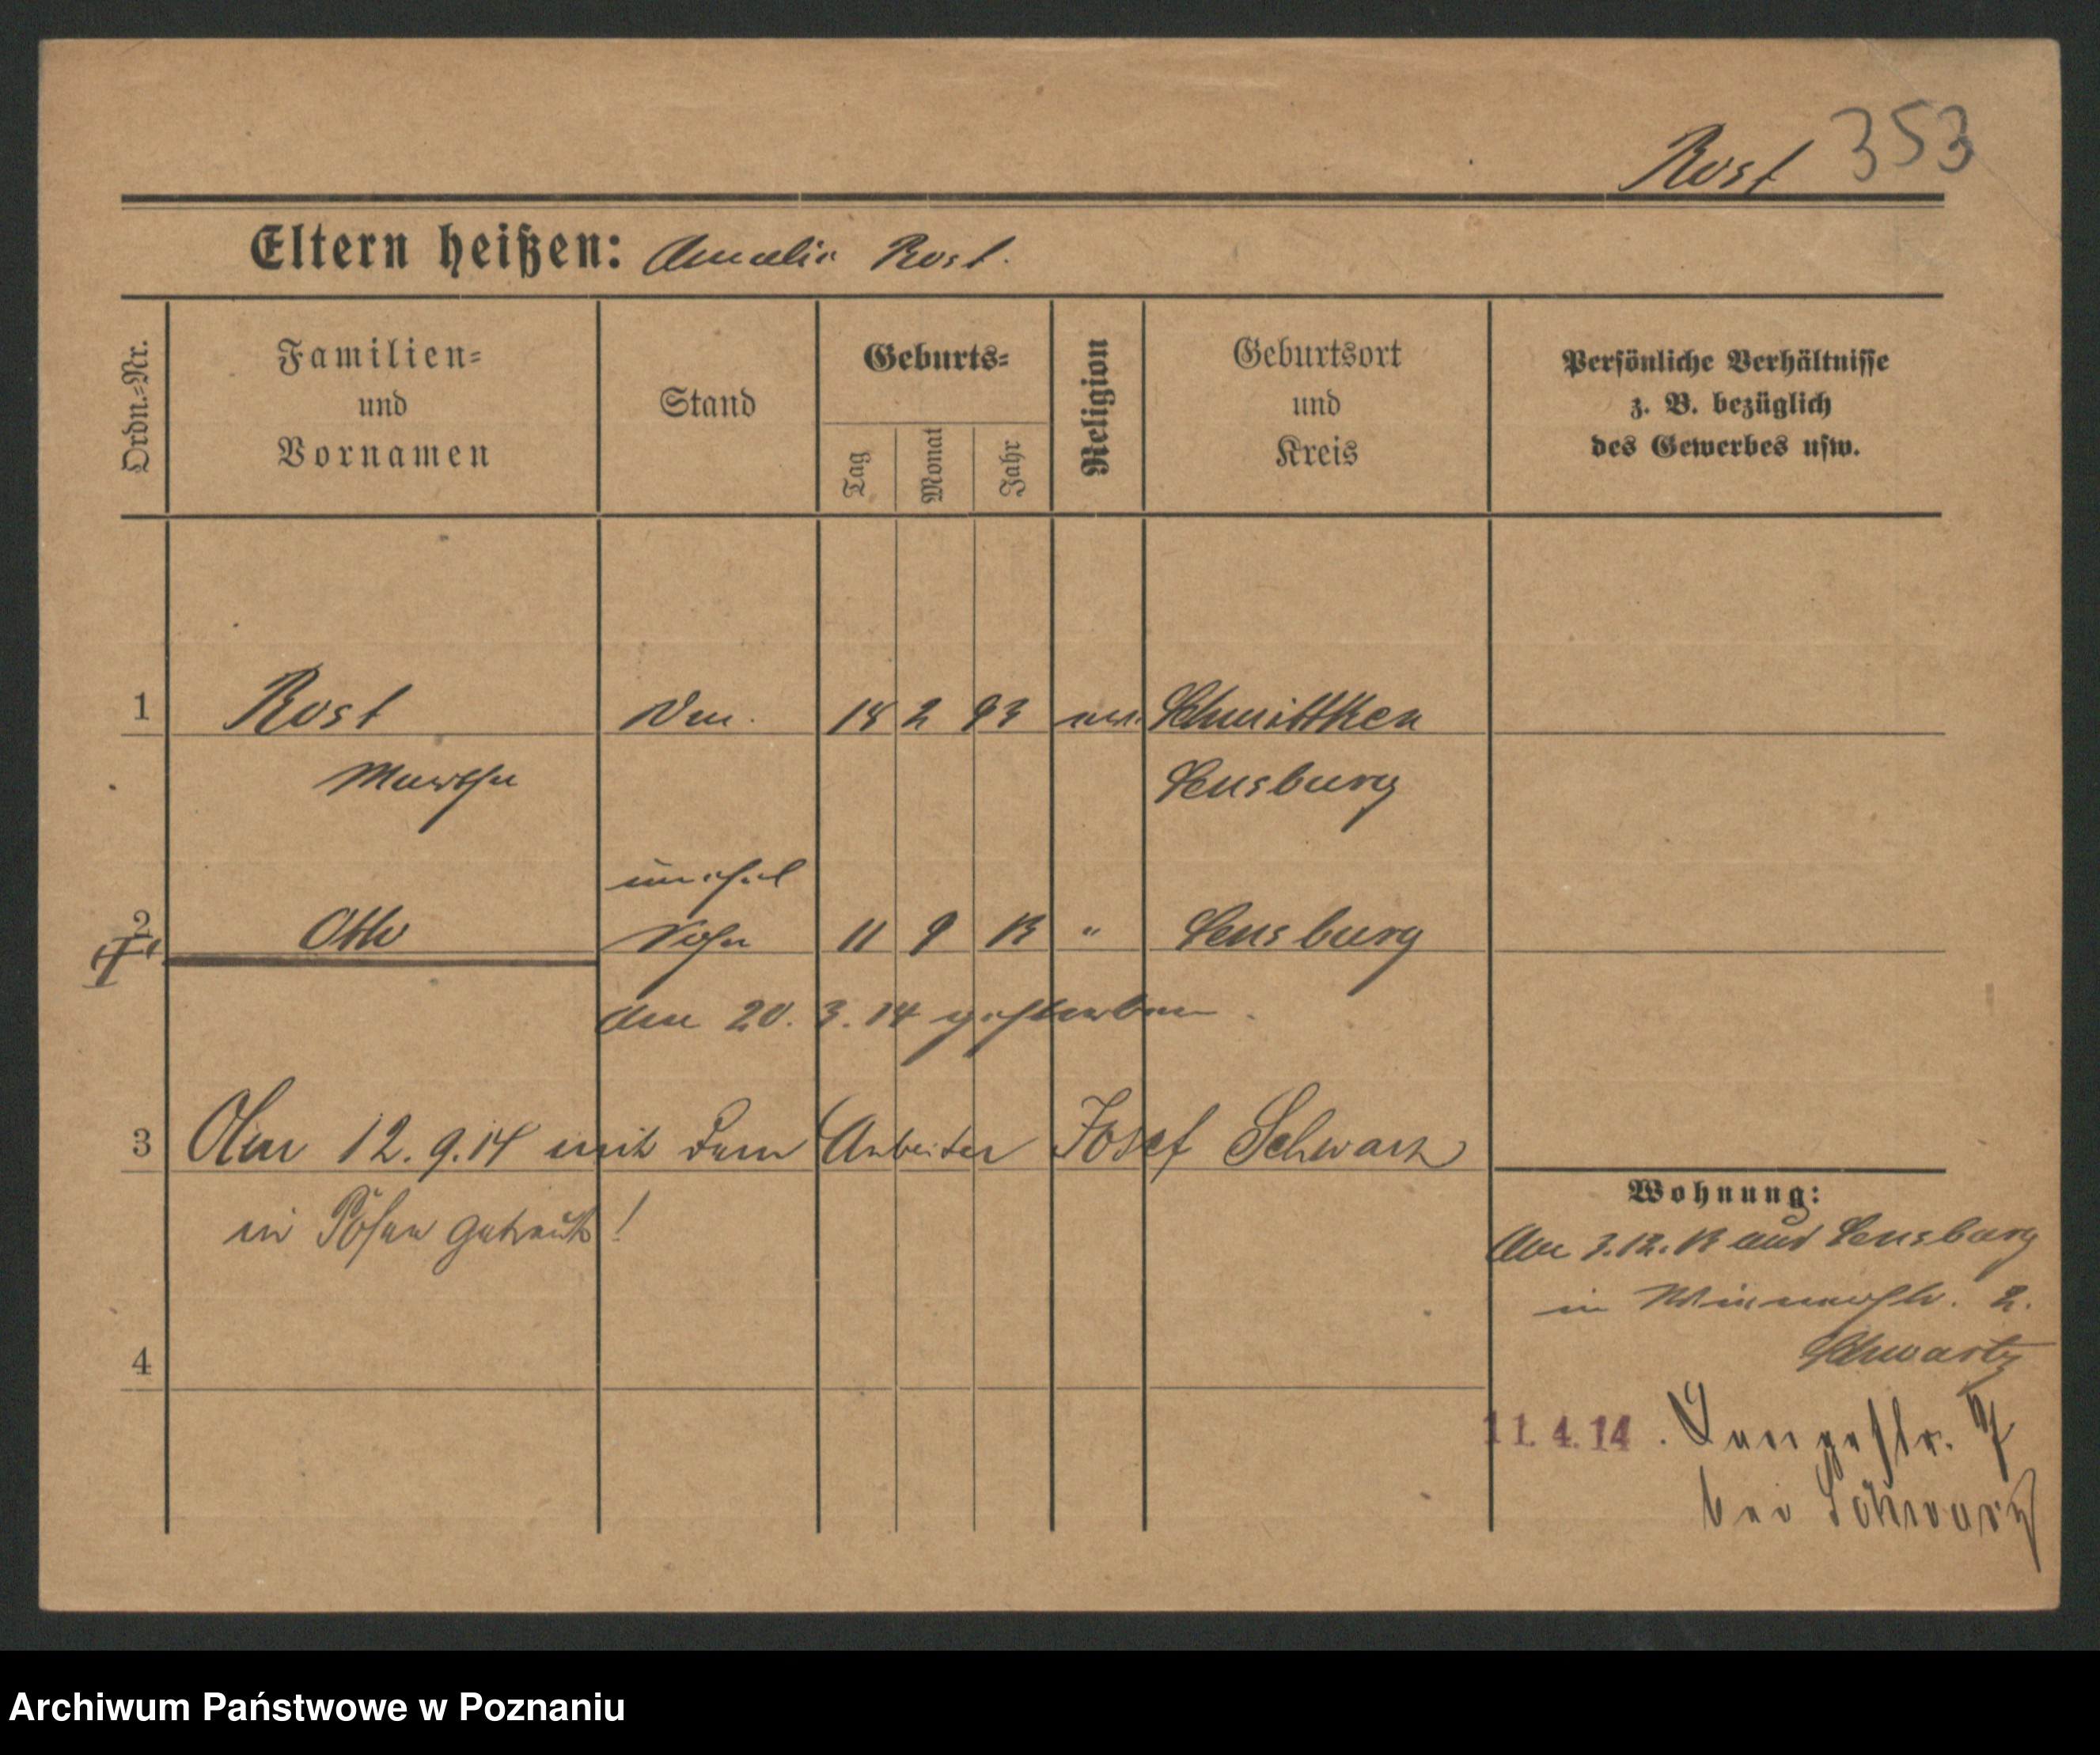 Rost 353
Eltern heißen: Amalie Rost.
Ordn.-Nr.
Familien-
und
Vornamen
Stand
Geburts-
Tag
Monat
Jahr
Religion
Geburtsort
und
Kreis
Persönliche Verhältnisse
z. B. bezüglich
des Gewerbes usw.
1 Rost 2 93 Schmittken
Martha Sensburg
unehel
2 Otto Sohn 11 9 13 " Sensburg
am 20. 3. 14 gestorben.
3 Am 12. 9. 14 mit dem Arbeiter Josef Schwarz
in Posen getraut!
4
Wohnung:
Am 3. 12. 13 aus Sensburg
in 2.
Schwartz
11. 4. 14. Langestr. 7
bei Schwarz
Archiwum Państwowe w Poznaniu